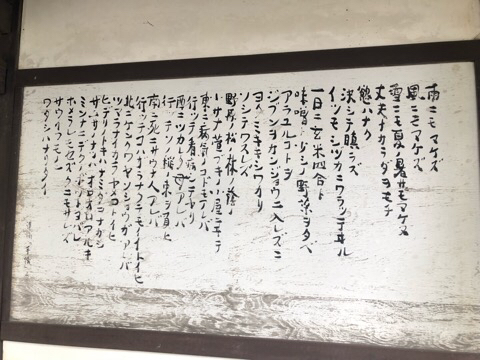 雨ニモマケズ
風ニモマケズ
雪ニモ夏ノ暑サニモマケヌ
丈夫ナカラダヲモチ
慾ハナク
決シテ瞋ラズ
イツモシヅカニワラッテヰル
一日ニ玄米四合ト
味噌ト少シノ野菜ヲタベ
アラユルコトヲ
ジブンヲカンジョウニ入レズニ
ヨクミキキシワカリ
ソシテワスレズ
野原ノ松ノ林ノ蔭ノ
小サナ萱ブキノ小屋ニヰテ
東ニ病気ノコドモアレバ
行ッテ看病シテヤリ
西ニツカレタ母アレバ
行ッテソノ稲ノ束ヲ負ヒ
南ニ死ニサウナ人アレバ
行ッテコハガラナクテモイイトイヒ
北ニケンクヮヤソショウガアレバ
ツマラナイカラヤメロトイヒ
ヒデリノトキハナミダヲナガシ
サムサノナツハオロオロアルキ
ミンナニデクノボートヨバレ
ホメラレモセズ
クニモサレズ
サウイフモノニ
ワタシハナリタイ